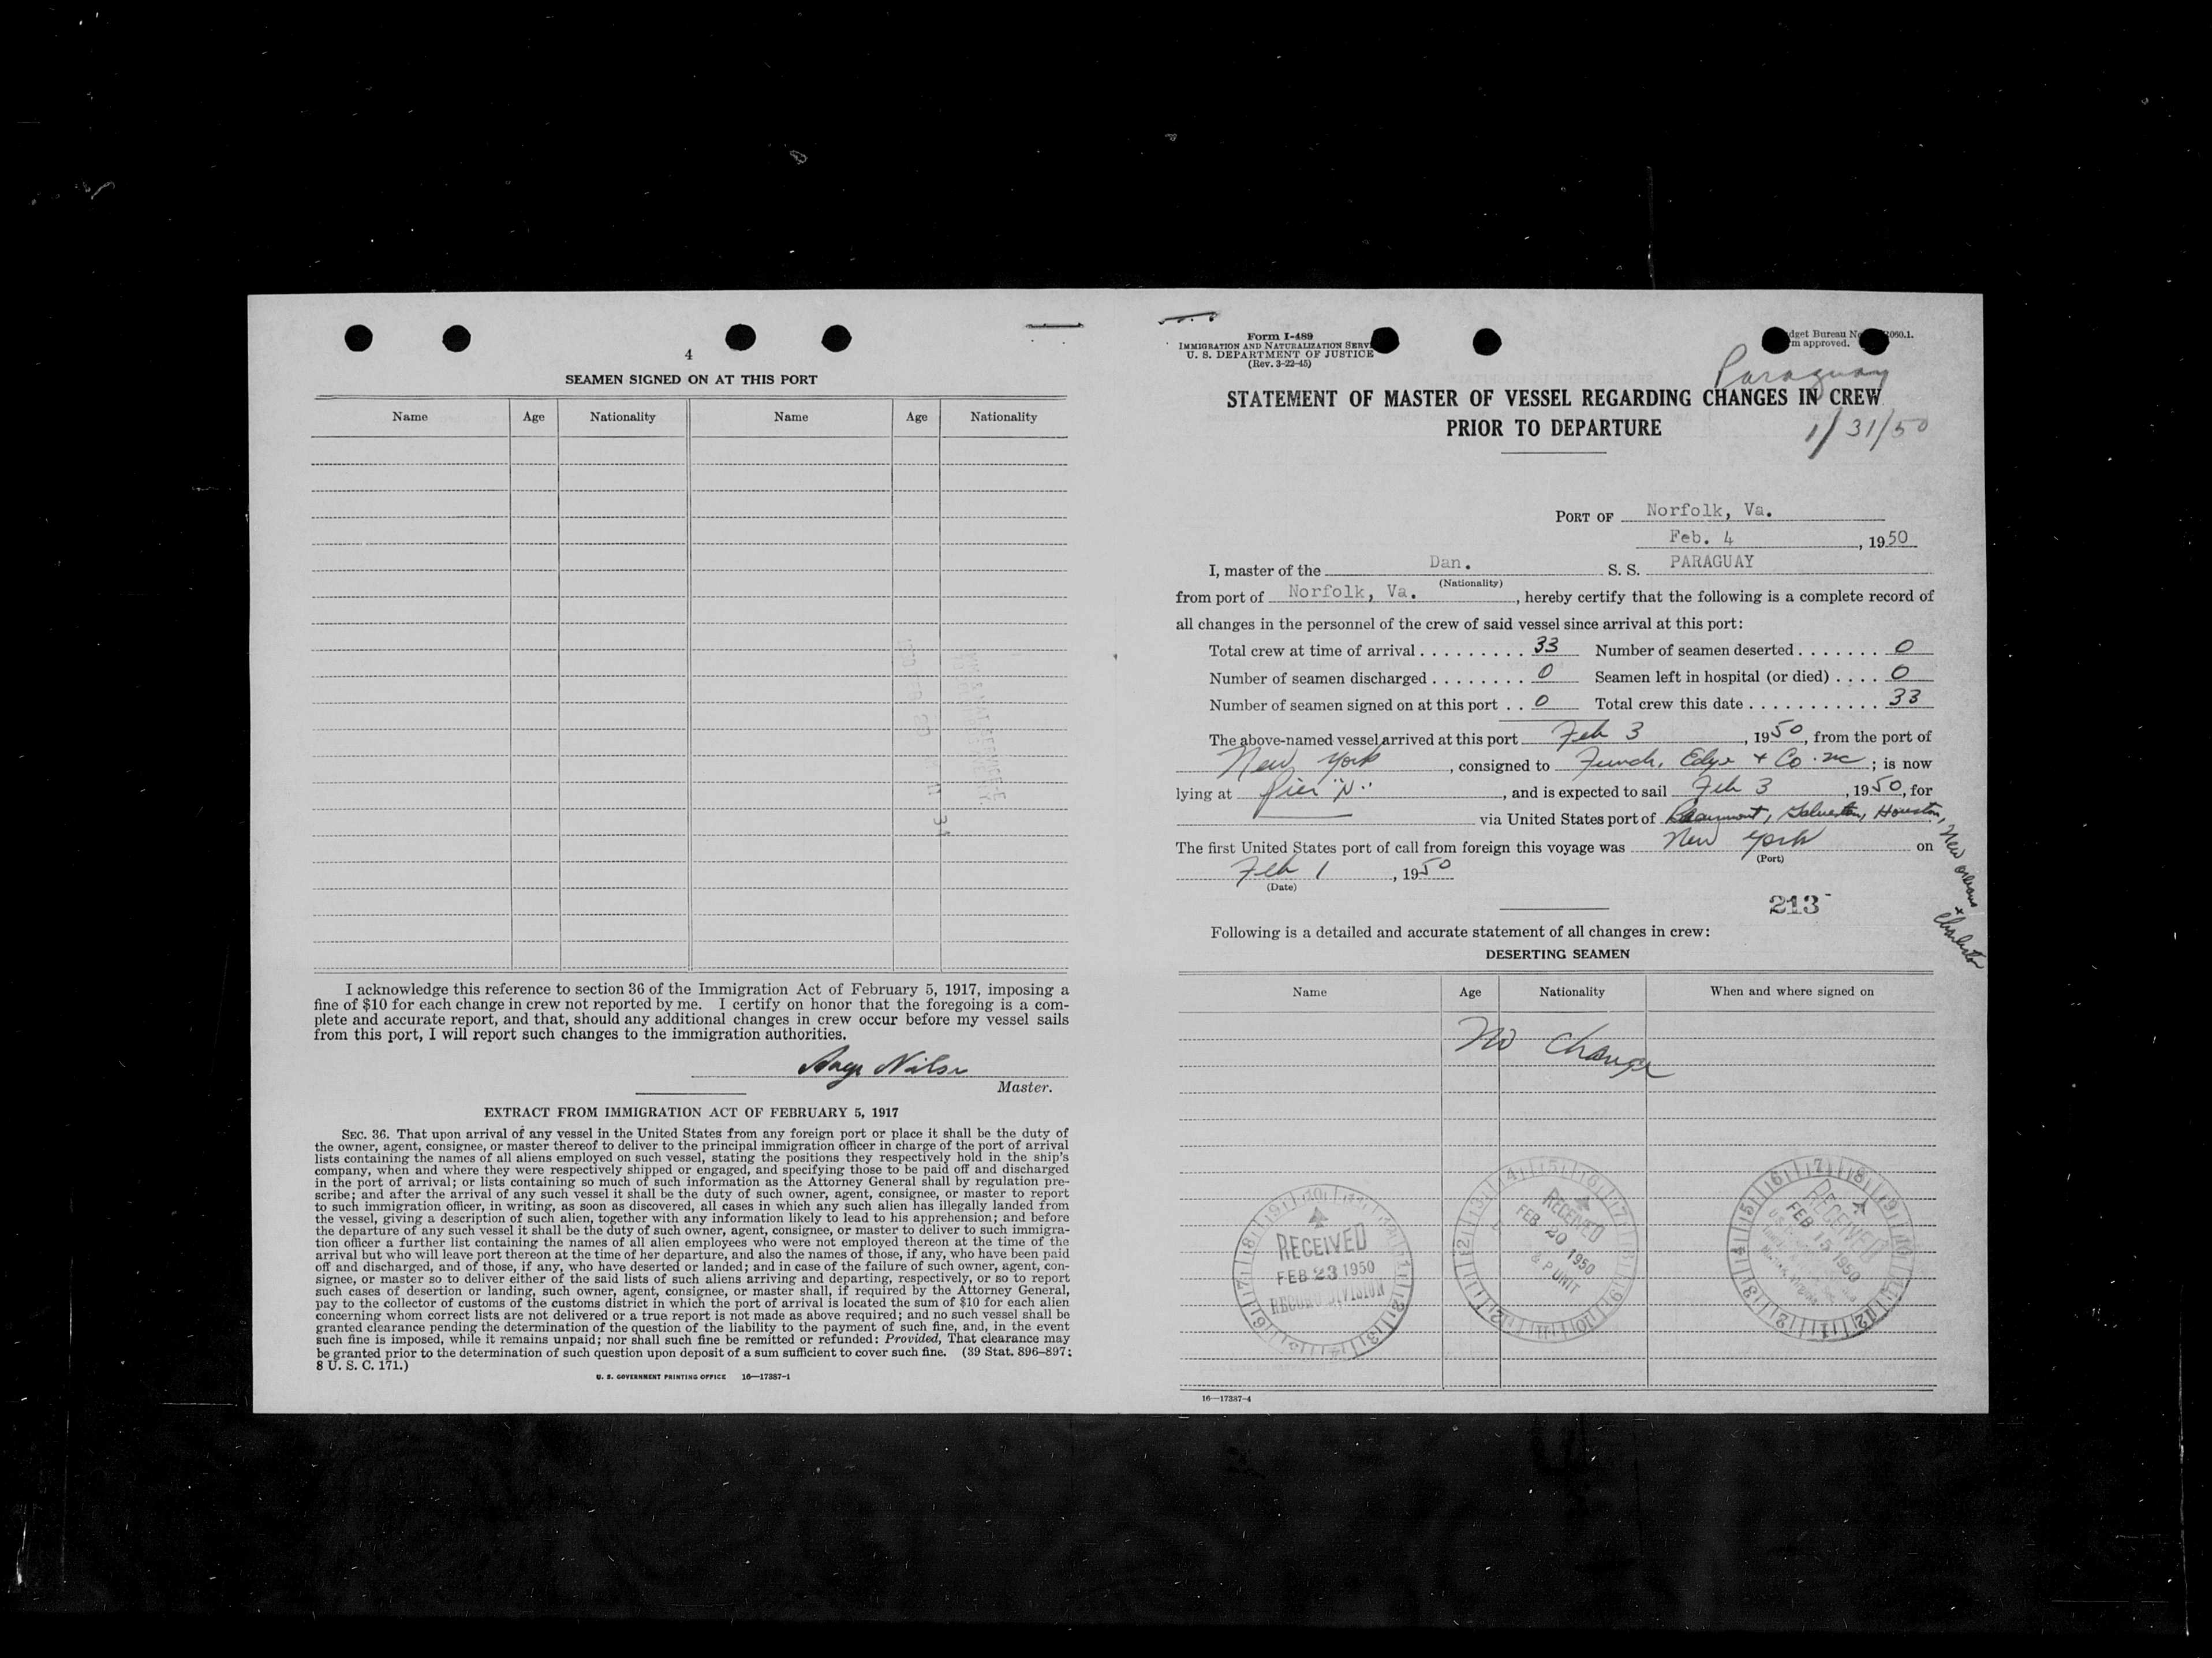 4
SEAMEN SIGNED ON AT THIS PORT
Name Age Nationality Name Age Nationality
I acknowledge this reference to section 36 of the Immigration Act of February 5, 1917, imposing a
fine of $10 for each change in crew not reported by me. I certify on honor that the foregoing is a com-
plete and accurate report, and that, should any additional changes in crew occur before my vessel sails
from this port, I will report such changes to the immigration authorities.
Master.
EXTRACT FROM IMMIGRATION ACT OF FEBRUARY 5, 1917
SEC. 36. That upon arrival of any vessel in the United States from any foreign port or place it shall be the duty of
the owner, agent, consignee, or master thereof to deliver to the principal immigration officer in charge of the port of arrival
lists containing the names of all aliens employed on such vessel, stating the positions they respectively hold in the ship's
company, when and where they were respectively shipped or engaged, and specifying those to be paid off and discharged
in the port of arrival; or lists containing so much of such information as the Attorney General shall by regulation pre-
scribe; and after the arrival of any such vessel it shall be the duty of such owner, agent, consignee, or master to report
to such immigration officer, in writing, as soon as discovered, all cases in which any such alien has illegally landed from
the vessel, giving a description of such alien, together with any information likely to lead to his apprehension; and before
the departure of any such vessel it shall be the duty of such owner, agent, consignee, or master to deliver to such immigra-
tion officer a further list containing the names of all alien employees who were not employed thereon at the time of the
arrival but who will leave port thereon at the time of her departure, and also the names of those, if any, who have been paid
off and discharged, and of those, if any, who have deserted or landed; and in case of the failure of such owner, agent, con-
signee, or master so to deliver either of the said lists of such aliens arriving and departing, respectively, or so to report
such cases of desertion or landing, such owner, agent, consignee, or master shall, if required by the Attorney General,
pay to the collector of customs of the customs district in which the port of arrival is located the sum of $10 for each alien
concerning whom correct lists are not delivered or a true report is not made as above required; and no such vessel shall be
granted clearance pending the determination of the question of the liability to the payment of such fine, and, in the event
such fine is imposed, while it remains unpaid; nor shall such fine be remitted or refunded: Provided, That clearance may
be granted prior to the determination of such question upon deposit of a sum sufficient to cover such fine. (39 Stat. 896-897;
8 U. S. C. 171.)
U. S. GOVERNMENT PRINTING OFFICE 16—17387-1
Form I-489
IMMIGRATION AND NATURALIZATION SERV
U. S. DEPARTMENT OF JUSTICE
(Rev. 3-22-45)
dget Bureau N 060.1.
m approved.
Paraguay
STATEMENT OF MASTER OF VESSEL REGARDING CHANGES IN CREW
PRIOR TO DEPARTURE
1/31/50
PORT OF Norfolk, Va.
Feb. 4, 1950
I, master of the Dan. S. S. PARAGUAY
(Nationality)
from port of Norfolk, Va., hereby certify that the following is a complete record of
all changes in the personnel of the crew of said vessel since arrival at this port:
Total crew at time of arrival 33 Number of seamen deserted 0
Number of seamen discharged 0 Seamen left in hospital (or died) 0
Number of seamen signed on at this port 0 Total crew this date 33
The above-named vessel arrived at this port Feb 3, 1950, from the port of
New York, consigned to Funch, Edye + Co. Inc; is now
lying at Pier "N", and is expected to sail Feb 3, 1950, for
via United States port of Beaumont, Galveston, Houston, New Orleans + Charleston
The first United States port of call from foreign this voyage was New York on
(Port)
Feb 1, 1950
(Date)
213
Following is a detailed and accurate statement of all changes in crew:
DESERTING SEAMEN
Name Age Nationality When and where signed on
No Change
RECEIVED
FEB 23 1950
RECORD DIVISION
RECEIVED
FEB 20 1950
& P UNIT
RECEIVED
FEB 15 1950
16—17387-4